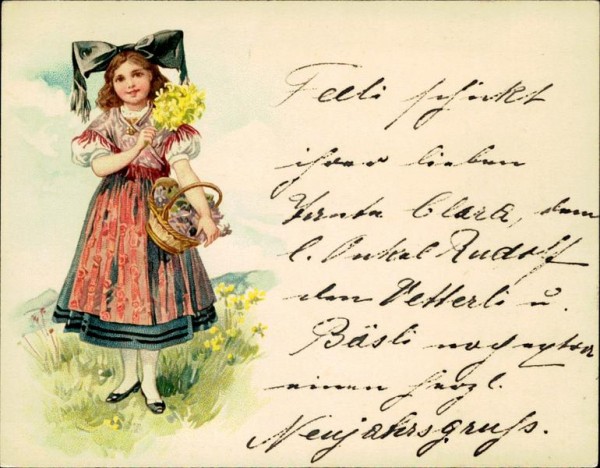 Felli schickt
ihrer lieben
Tante Clara, dem
l. Onkel Rudolf
den Vetterli u.
Bäsli noch extra
einen herzl.
Neujahrsgruss.